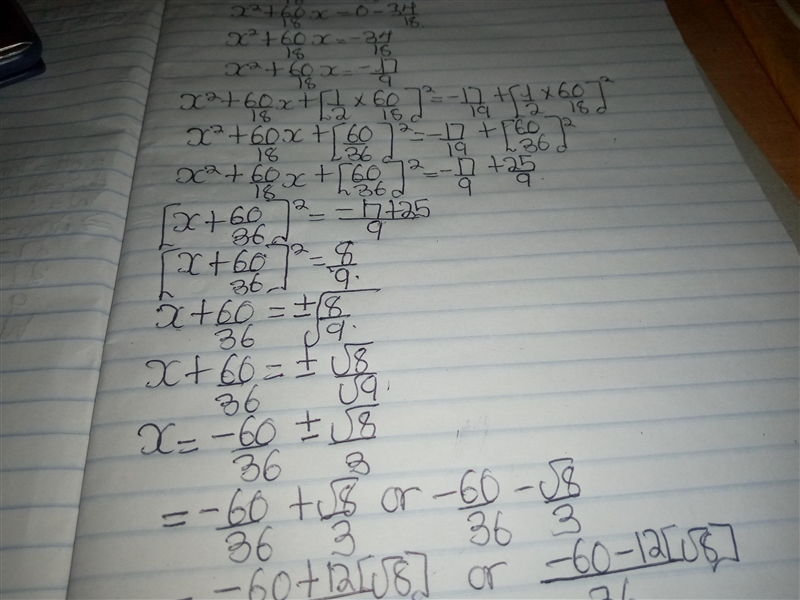 x²+60/18 x=0-34/18
x²+60/18 x=-34/18
x²+60/18 x=-17/9
x²+60/18 x+[1/2×60/18]²=-17/19+[1/2×60/18]²
x²+60/18 x+[60/36]²=-17/19+[60/36]²
x²+60/18 x+[60/36]²=-17/9+25/9
[x+60/36]²=-17+25/9
[x+60/36]²=8/9.
x+60/36=±√8/9.
x+60/36=±√8/√9.
x=-60/36±√8/3
=-60/36+√8/3 or -60/36-√8/3
=-60+12[√8] or -60-12[√8]/36